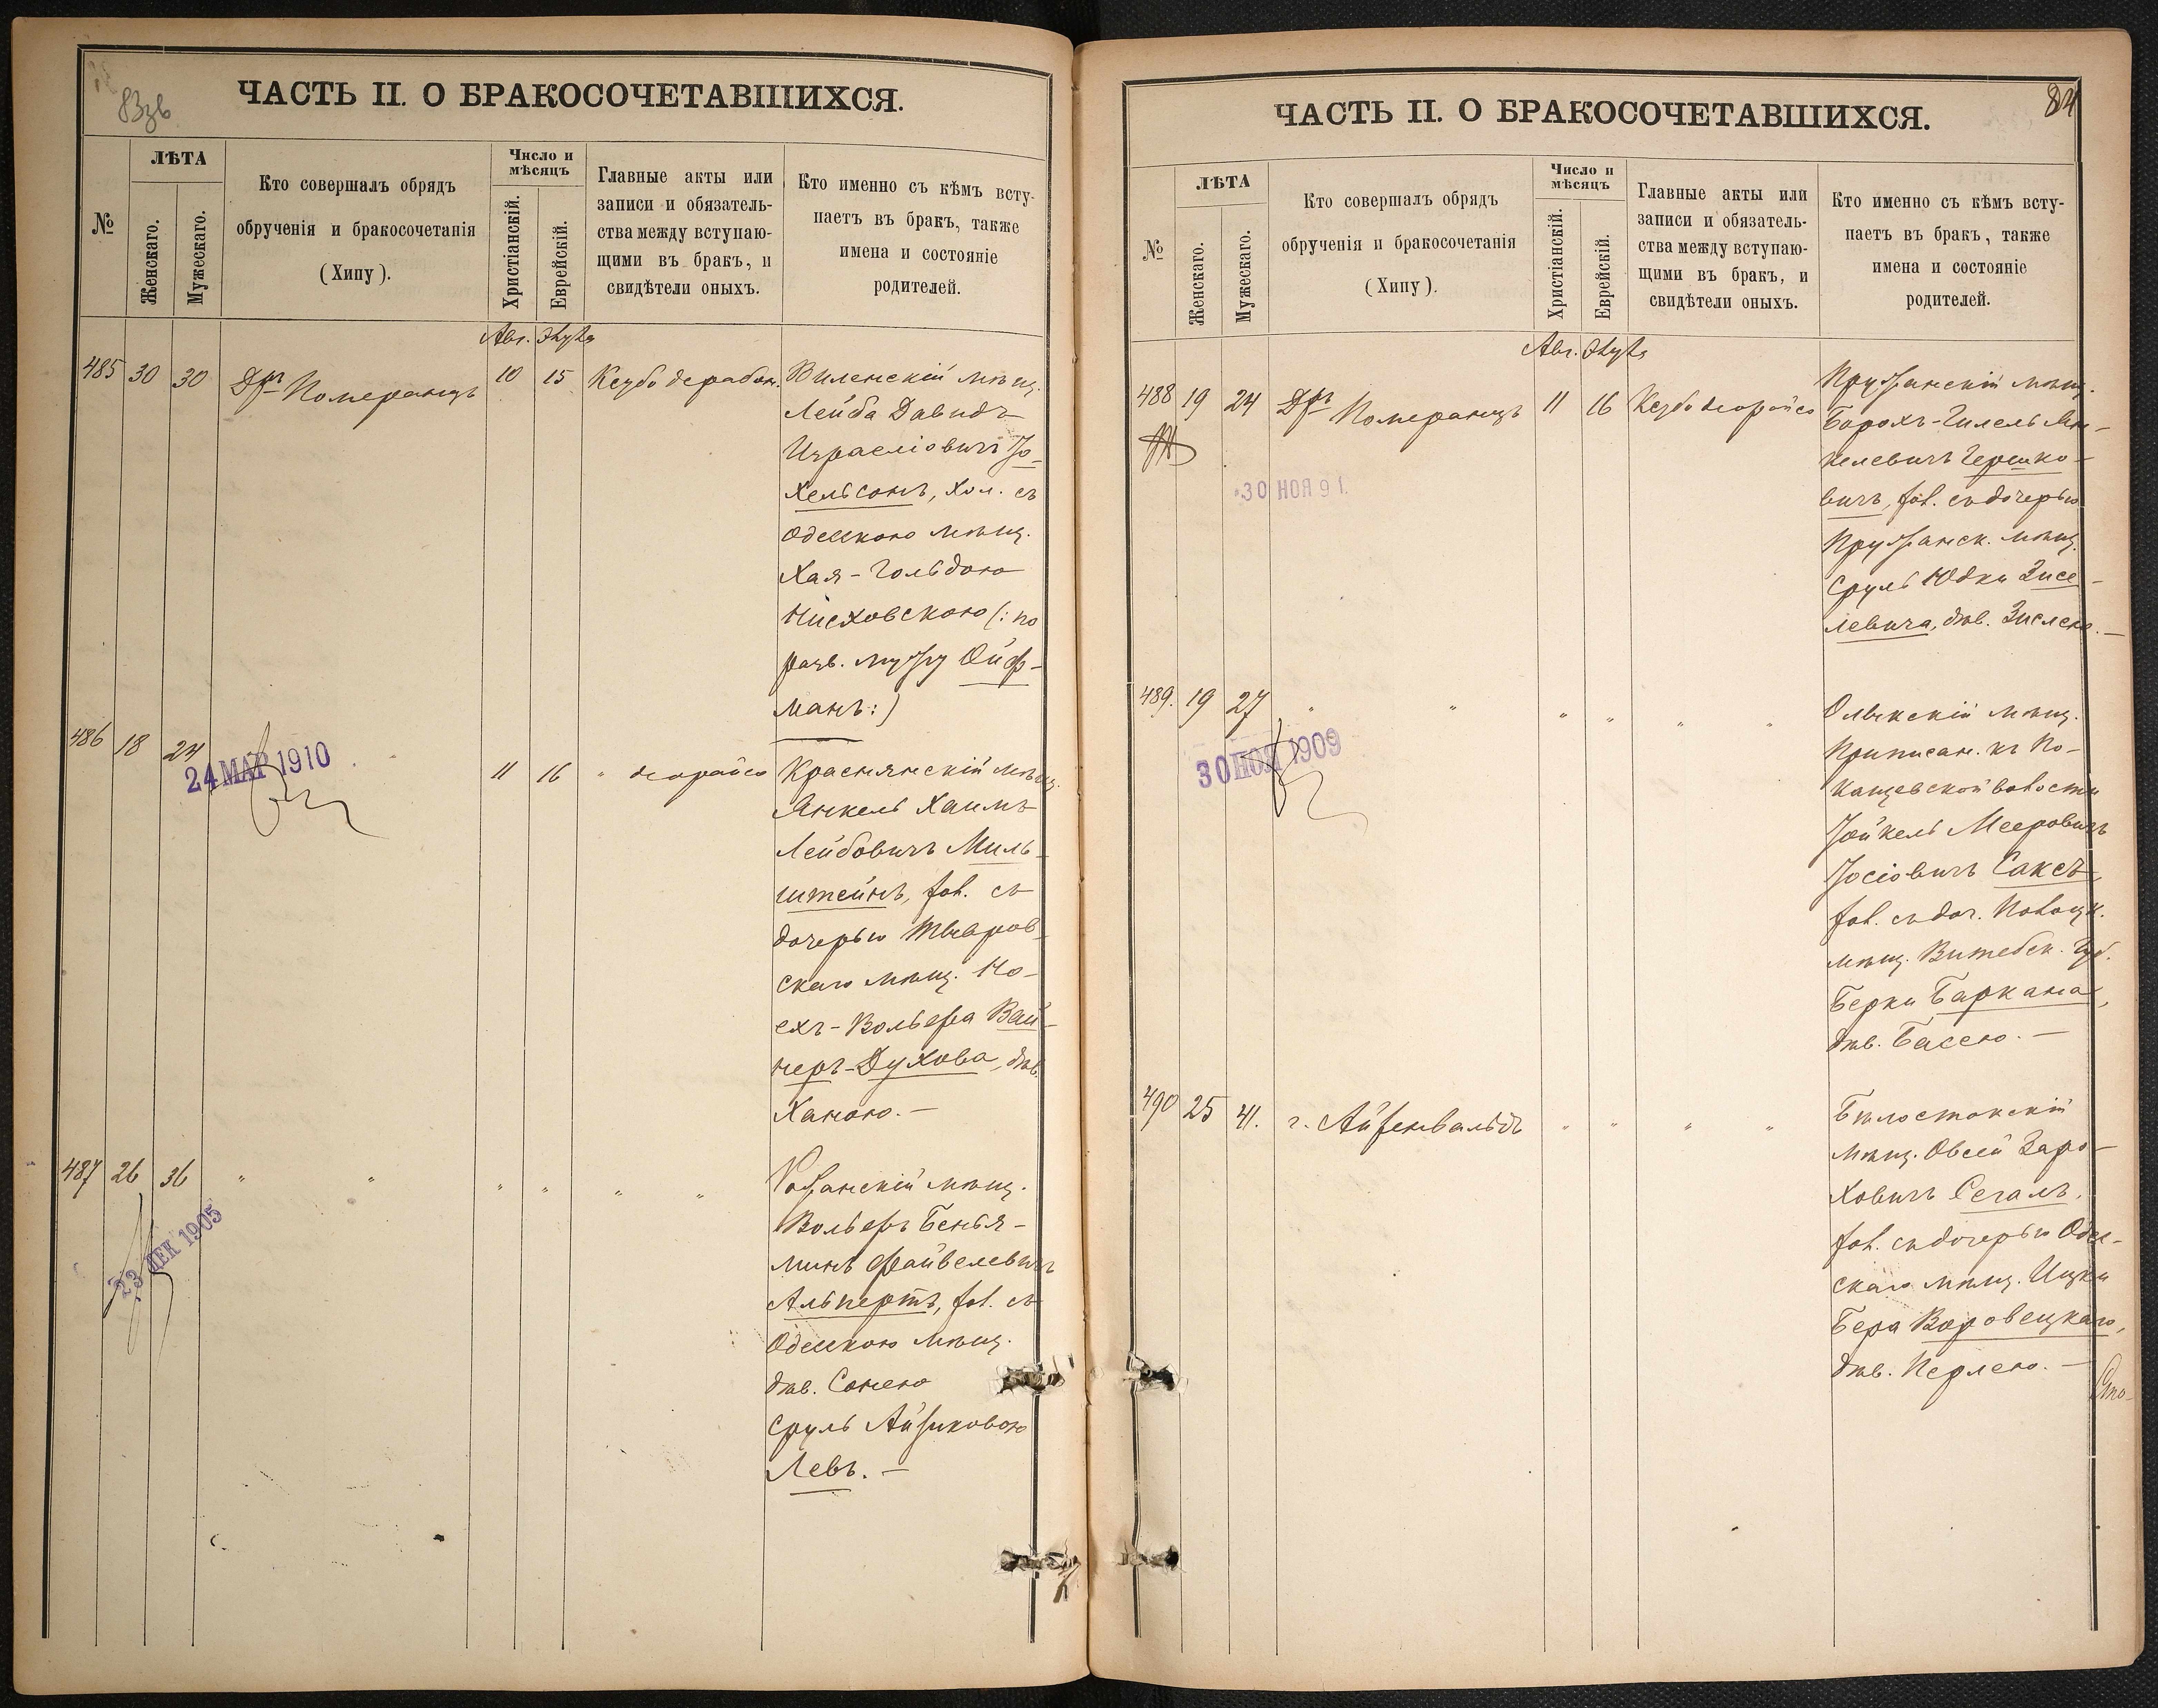 83об
ЧАСТЬ II. О БРАКОСОЧЕТАВШИХСЯ.
№
ЛѢТА
Женскаго.
Мужескаго.
Кто совершалъ обрядъ
обрученія и бракосочетанія
(Хипу).
Число и
мѣсяцъ
Христіанскій.
Еврейскій.
Главные акты или
записи и обязатель-
ства между вступаю-
щими въ бракъ, и
свидѣтели оныхъ.
Кто именно съ кѣмъ всту-
паетъ въ бракъ, также
имена и состояніе
родителей.
Авг.
485 30 30 Дръ Померанцъ 10 15 Кезубо дерабон. Виленскій мѣщ.
Лейба Давидъ
Израеліовичъ Іо-
хельсонъ, хол. съ
Одесскою мѣщ.
Хая-Гольдою
Нисховскою (: по
разв. мужу Ойф-
манъ :)
486 18 24 " 11 16 " деорайсо Краснянскій мѣщ.
24 МАР 1910
Янкель Хаимъ
Лейбовичъ Миль-
штейнъ, хол. съ
дочерью Тывров-
скаго мѣщ. Но-
ехъ-Вольфа Вай-
неръ-Духова, дѣв.
Ханою. —
487 26 36 " " " " " " Рожанскій мѣщ.
23 ДЕК 1905
Вольфъ Бенья-
минъ Файвелевичъ
Альпертъ, хол. съ
Одесскою мѣщ.
дѣв. Сонею
Сруль Айзиковою
Левъ. —
84
ЧАСТЬ II. О БРАКОСОЧЕТАВШИХСЯ.
№
ЛѢТА
Женскаго.
Мужескаго.
Кто совершалъ обрядъ
обрученія и бракосочетанія
(Хипу).
Число и
мѣсяцъ
Христіанскій.
Еврейскій.
Главные акты или
записи и обязатель-
ства между вступаю-
щими въ бракъ, и
свидѣтели оныхъ.
Кто именно съ кѣмъ всту-
паетъ въ бракъ, также
имена и состояніе
родителей.
Авг.
488 19 24 Дръ Померанцъ 11 16 Кезубо деорайсо Пружанскій мѣщ.
Борохъ-Гилель Ян-
келевичъ Гершко-
вичъ, хол. съ дочерью
30 НОЯ 91
Пружанск. мѣщ.
Сруль Юдки Зисе-
левича, дѣв. Зислею. —
489. 19 27 " " " " " " Олыкскій мѣщ.
30 НОЯ 1909
Приписан. къ По-
кащевской волости
Іойкель Мееровичъ
Іосіовичъ Саксъ,
хол. съ доч. Полоцк.
мѣщ. Витебск. Губ.
Берки Баркана,
дѣв. Басею. —
490 25 41. г. Айзенвальдъ " " " " Бѣлостокскій
мѣщ. Овсей Заро-
ховичъ Сегалъ,
хол. съ дочерью Одес-
скаго мѣщ. Ицки
Бера Воровецкаго,
дѣв. Перлею. —